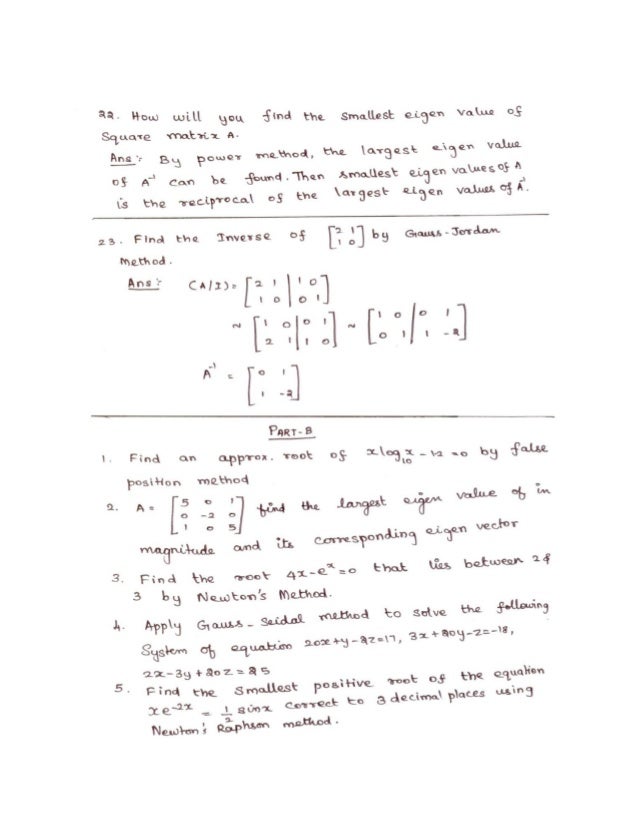 22. How will you find the smallest eigen value of
Square matrix A.
Ans :- By power method, the largest eigen value
of A⁻¹ can be found. Then smallest eigen values of A
is the reciprocal of the largest eigen values of A⁻¹.
23. Find the Inverse of [2 1; 1 0] by Gauss-Jordan
method.
Ans :- (A/I) = [2 1 | 1 0; 1 0 | 0 1]
~ [1 0 | 0 1; 2 1 | 1 0] ~ [1 0 | 0 1; 0 1 | 1 -2]
A⁻¹ = [0 1; 1 -2]
PART-B
1. Find an approx. root of x log₁₀ x - 12 = 0 by false
position method
2. A = [5 0 1; 0 -2 0; 1 0 5] find the largest eigen value of in
magnitude and its corresponding eigen vector
3. Find the root 4x-eˣ=0 that lies between 2 &
3 by Newton's Method.
4. Apply Gauss-Seidal method to solve the following
System of equation 20x+y-2z=17, 3x+20y-z=-18,
2x-3y+20z=25
5. Find the smallest positive root of the equation
xe⁻²ˣ = 1/2 sinx correct to 3 decimal places using
Newton's Raphson method.